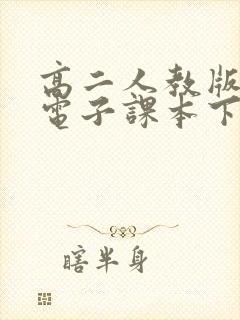 高二人教版
電子課本下
瞎半身